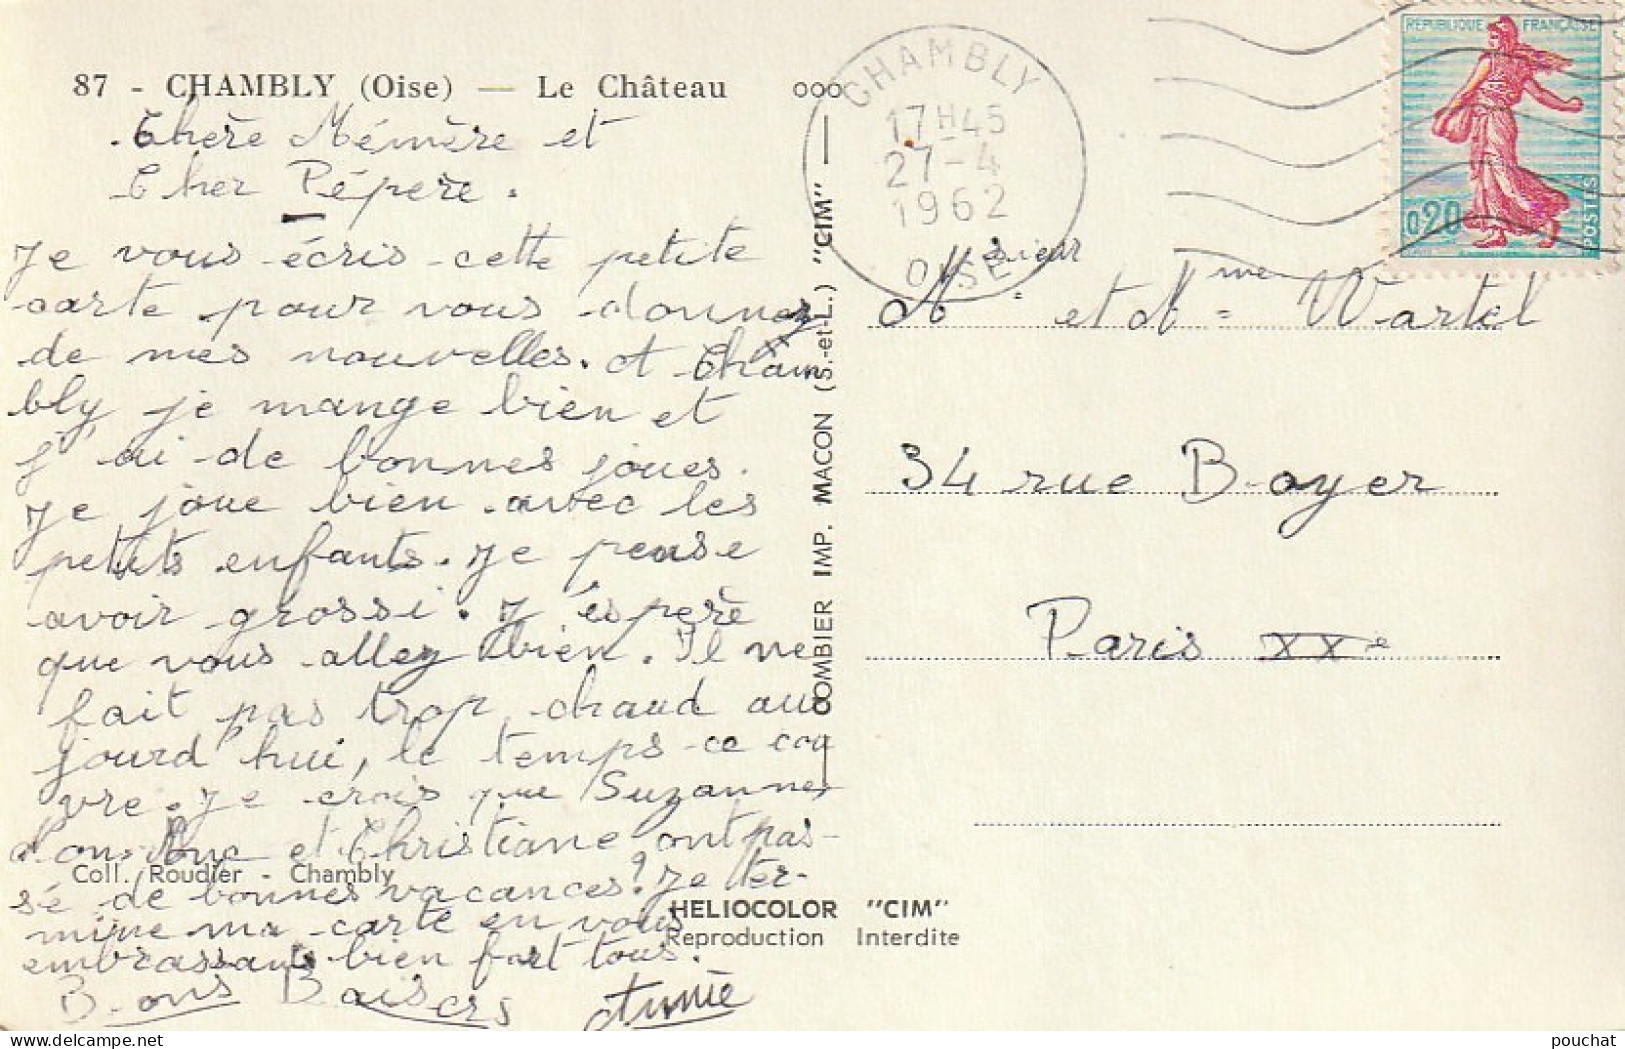 87 - CHAMBLY (Oise) — Le Château
Chère Mémère et
Cher Pépère.
Je vous écris cette petite
carte pour vous donner
de mes nouvelles. A Cham
bly je mange bien et
j'ai de bonnes joues.
Je joue bien avec les
petits enfants. Je pense
avoir grossi. J'éspère
que vous allez bien. Il ne
fait pas trop chaud au
jourd'hui, le temps ce cou
vre. Je crois que Suzanne,
et Christiane ont pas-
sé de bonnes vacances? Je ter-
mine ma carte en vous
embrassant bien fort tous.
Bons Baisers Annie
Coll. Roudier - Chambly
COMBIER IMP. MACON (S.-et-L.) "CIM"
ooo
HELIOCOLOR "CIM"
Reproduction Interdite
CHAMBLY
17H45
27-4
1962
OISE
REPUBLIQUE FRANÇAISE
0,20
POSTES
Msieur et Mme Wartel
34 rue Boyer
Paris XXe
pouchat
www.delcampe.net